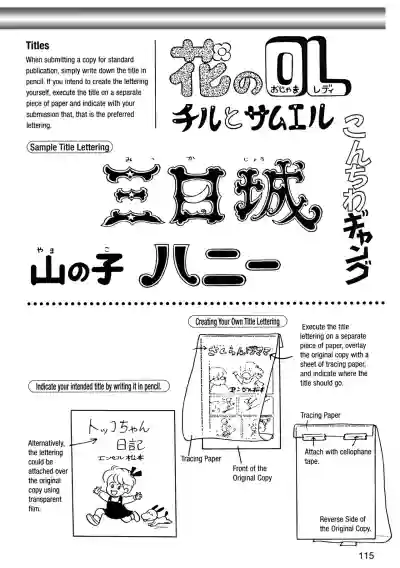 Titles
When submitting a copy for standard
publication, simply write down the title in
pencil. If you intend to create the lettering
yourself, execute the title on a separate
piece of paper and indicate with your
submission that, that is the preferred
lettering.
花のOL
おじゃま レディ
チルとサムエル
こんちわ
ギャング
Sample Title Lettering
みっ か じょう
三日城
やま こ
山の子
ハニー
Creating Your Own Title Lettering
Execute the title
lettering on a separate
piece of paper, overlay
the original copy with a
sheet of tracing paper,
and indicate where the
title should go.
Indicate your intended title by writing it in pencil.
トッコちゃん
日記
エンゼル松本
Alternatively,
the lettering
could be
attached over
the original
copy using
transparent
film.
Tracing Paper
Front of the
Original Copy
Tracing Paper
Attach with cellophane
tape.
Reverse Side of
the Original Copy.
115